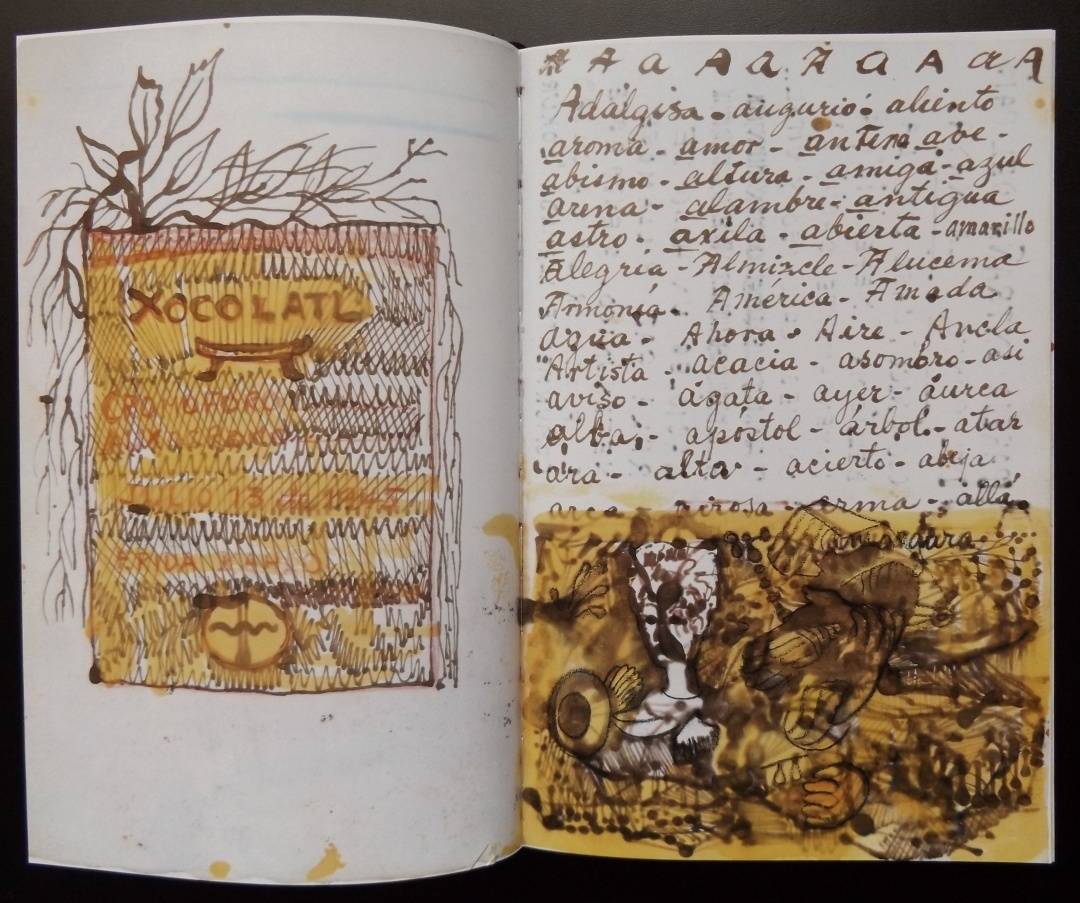 XOCOLATL
JULIO 13 de
A a A a A a A a A
Adalgisa - augurio - aliento
aroma - amor - antena ave -
abismo - altura - amiga - azul
arena - alambre - antigua
astro - axila - abierta - amarillo
Alegría - Almizcle - Alucema
Armonía - América - Amada
agua - Ahora - Aire - Ancla
Artista - acacia - asombro - asi
aviso - ágata - ayer - áurea
alba - apóstol - árbol - atar
ara - alta - acierto - abeja
arma - allá